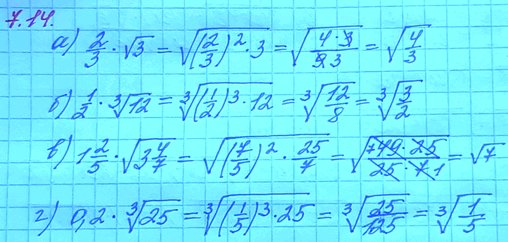 7.14.
а) 2/3 · √3 = √((2/3)² · 3) = √(4·3/9 3) = √(4/3)
б) 1/2 · ³√12 = ³√((1/2)³ · 12) = ³√(12/8) = ³√(3/2)
в) 1 2/5 · √(3 4/7) = √((7/5)² · 25/7) = √(7 49 · 25/25 · 7 1) = √7
г) 0,2 · ³√25 = ³√((1/5)³ · 25) = ³√(25/125) = ³√(1/5)